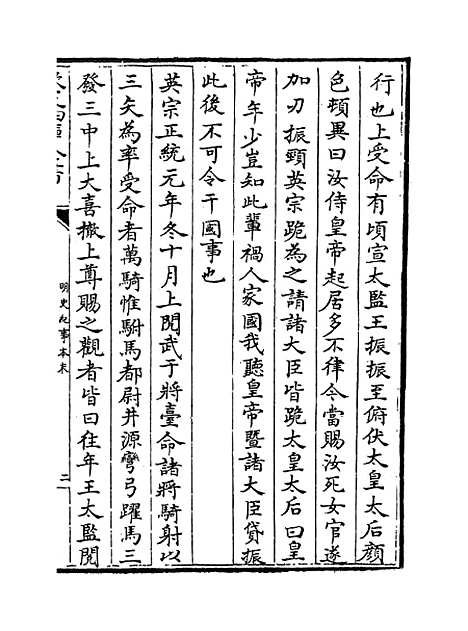 行也上受命有頃宣太監王振振至俯伏太皇太后顏
色頓異曰汝侍皇帝起居多不律今當賜汝死女官遂
加刃振頸英宗跪為之請諸大臣皆跪太皇太后曰皇
帝年少豈知此輩禍人家國我聽皇帝暨諸大臣貸振
此後不可令干國事也
英宗正統元年冬十月上閱武于將臺命諸將騎射以
三矢為率受命者萬騎惟駙馬都尉井源彎弓躍馬三
發三中上大喜撤上尊賜之觀者皆曰往年王太監閱
明史紀事本末
二